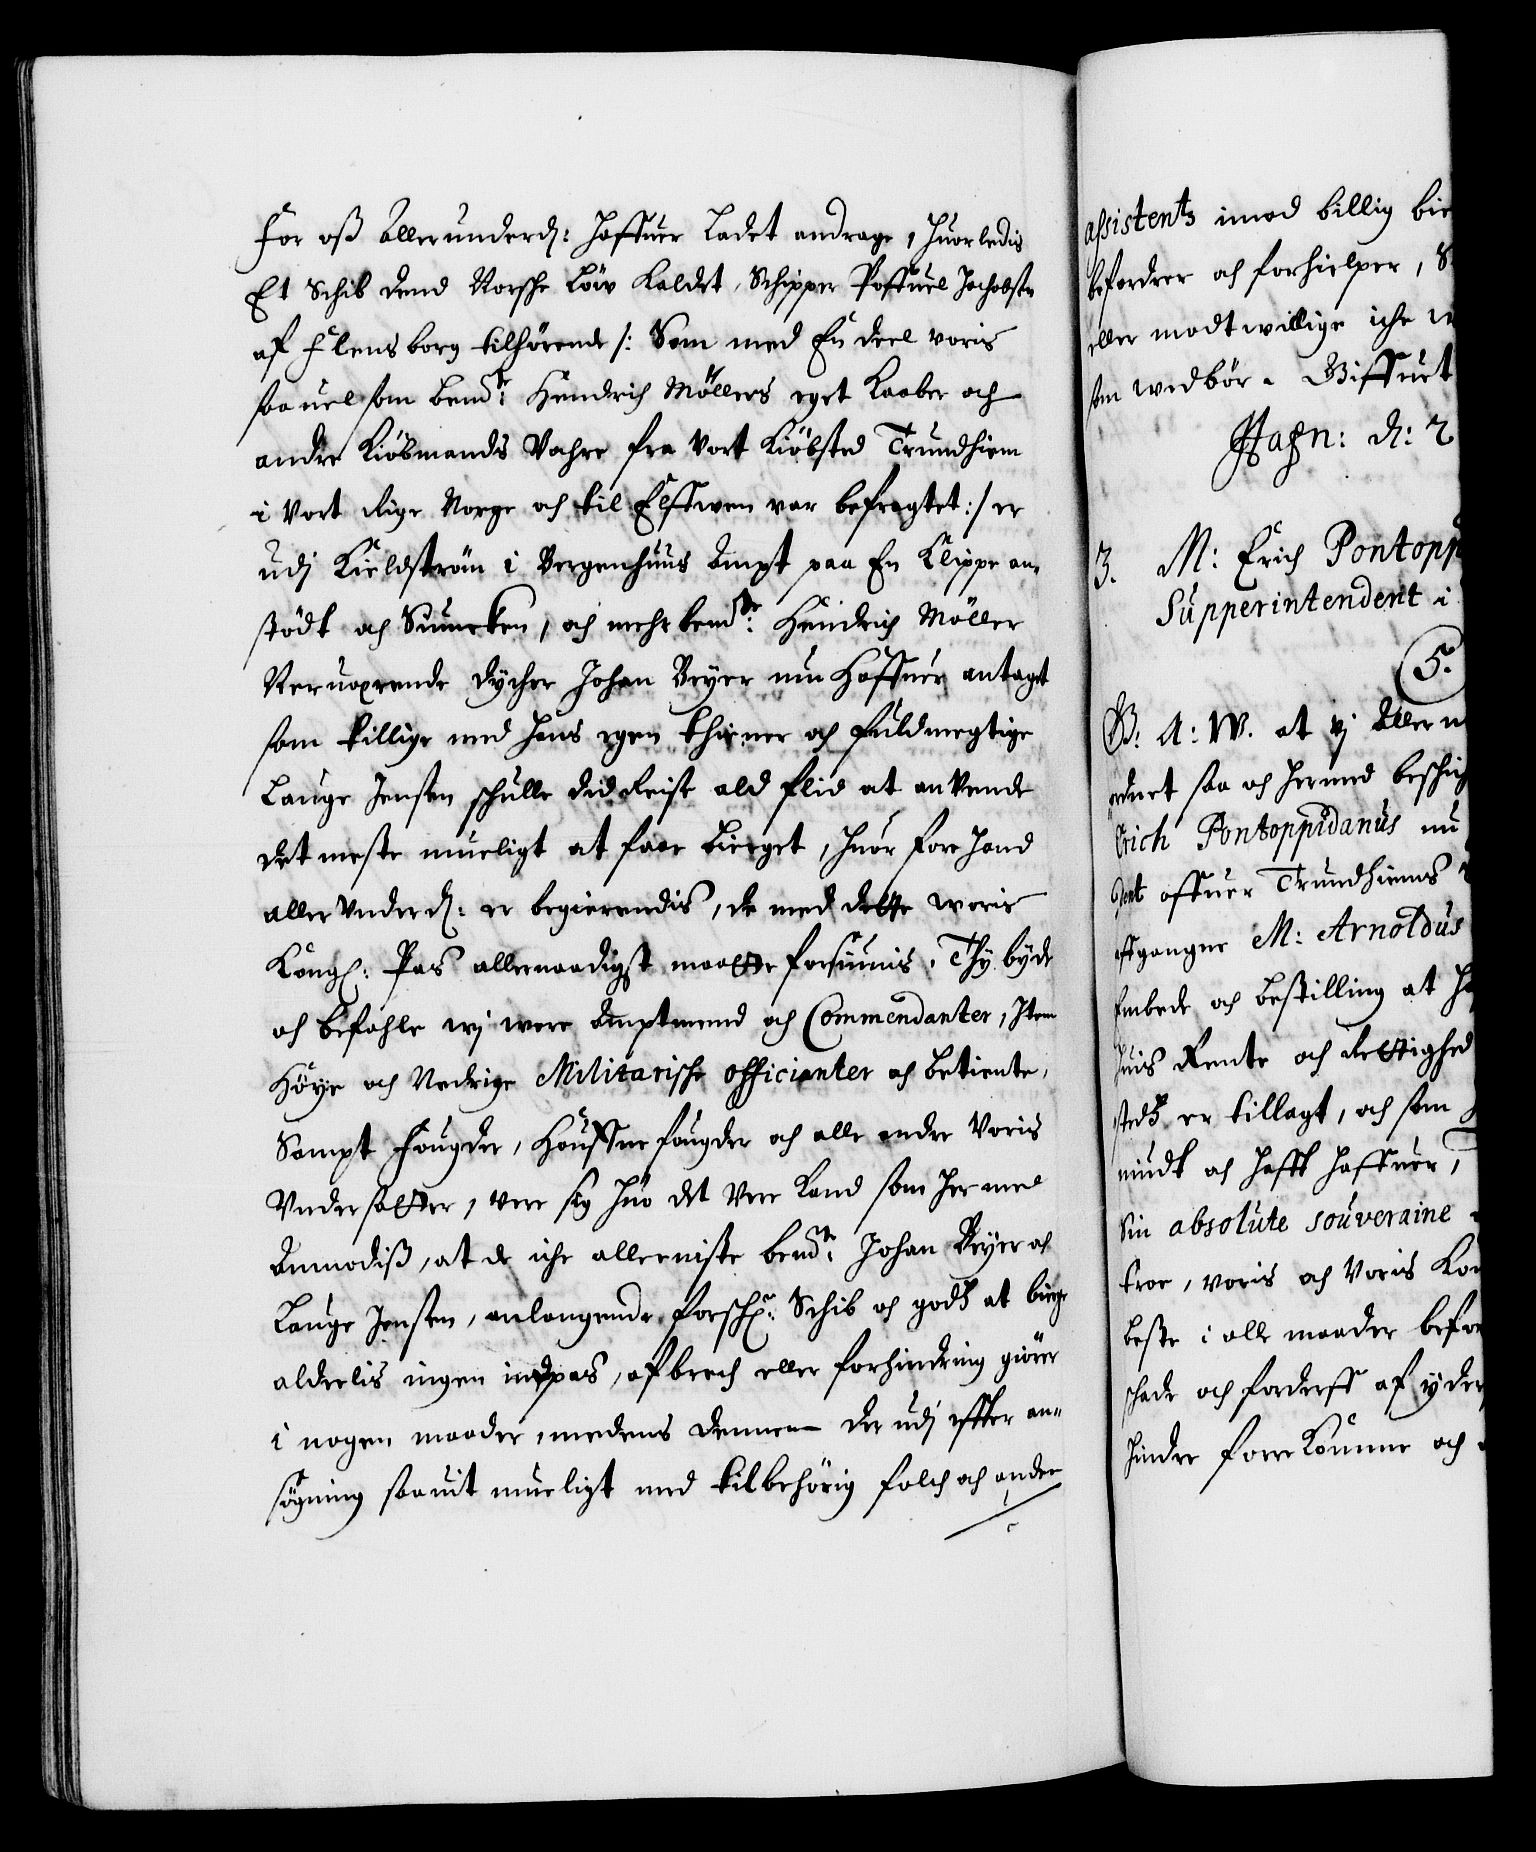 For oß Allerunderd: haffuer Ladet andrage, huorledis
Et Schib dend Norsche Löw kaldet, Schipper Poffuel Jachobsøn
af Flensborg tilhörende /: Som med En deel voris
saauelsom bemte: Hendrich Möllers eget Kaaber och
andre Kiöbmands Vahre fra vort Kiöbsted Trundhiem
i vort Rige Norge och til Elffwen var befragtet :/ er
udj Kieldström i Bergenhuus Ampt paa En Klippe an-
stödt och Siuncken, och mehrbemte: Hendrich Möller
Neruoxende dycher Johan Beyer nu haffuer antaget
som tillige med hans egen thiener och fuldmegtige
Lauge Jensen schulle did Reise ald flid at anvende
det meste mueligt at faae bierget, huor fore hand
aller underd: er begierendis, de med dette woris
Kongl: Pas allernaadigst maatte forsiunis. Thj byde
och befahle wj wore Amptmend och Commendanter, Item
Höye och Nedrige Militarische officianter och betiente,
Sampt Fougder, Houffue fougder och alle andre Voris
Undersatter, vere sig huo det vere kand som her med
Anmodiß, at de iche allerniste bemte: Johan Beyer och
Lauge Jensen, anlangende forschr: Schib och godß at bierge
alderlis ingen indpas, afbrech eller forhindring giörer
i nogen maader, medens dennem der udj effter an-
sögning saauit mueligt med tilbehörig folch och anden
assistentz imod billig bie
befordrer och forhielper, S
eller modtwillige iche w
som wedbör. Giffuet
Hafn: d: 2
3. M: Erich Pontopp
Supperintendent i
5.
G: A: W. at vj Aller n
ordnet saa och hermed beschich
Erich Pontoppidanus nu
dent offuer Trundhiems
affgangne M: Arnoldus
Embede och bestilling at h
huis Rente och Rettighed
stedß er tillagt, och som
niudt och hafft haffuer,
Sin absolute souveraine
troe, voris och Voris Kon
beste i alle maader befor
schade och forderff af yder
hindre forrekomme och